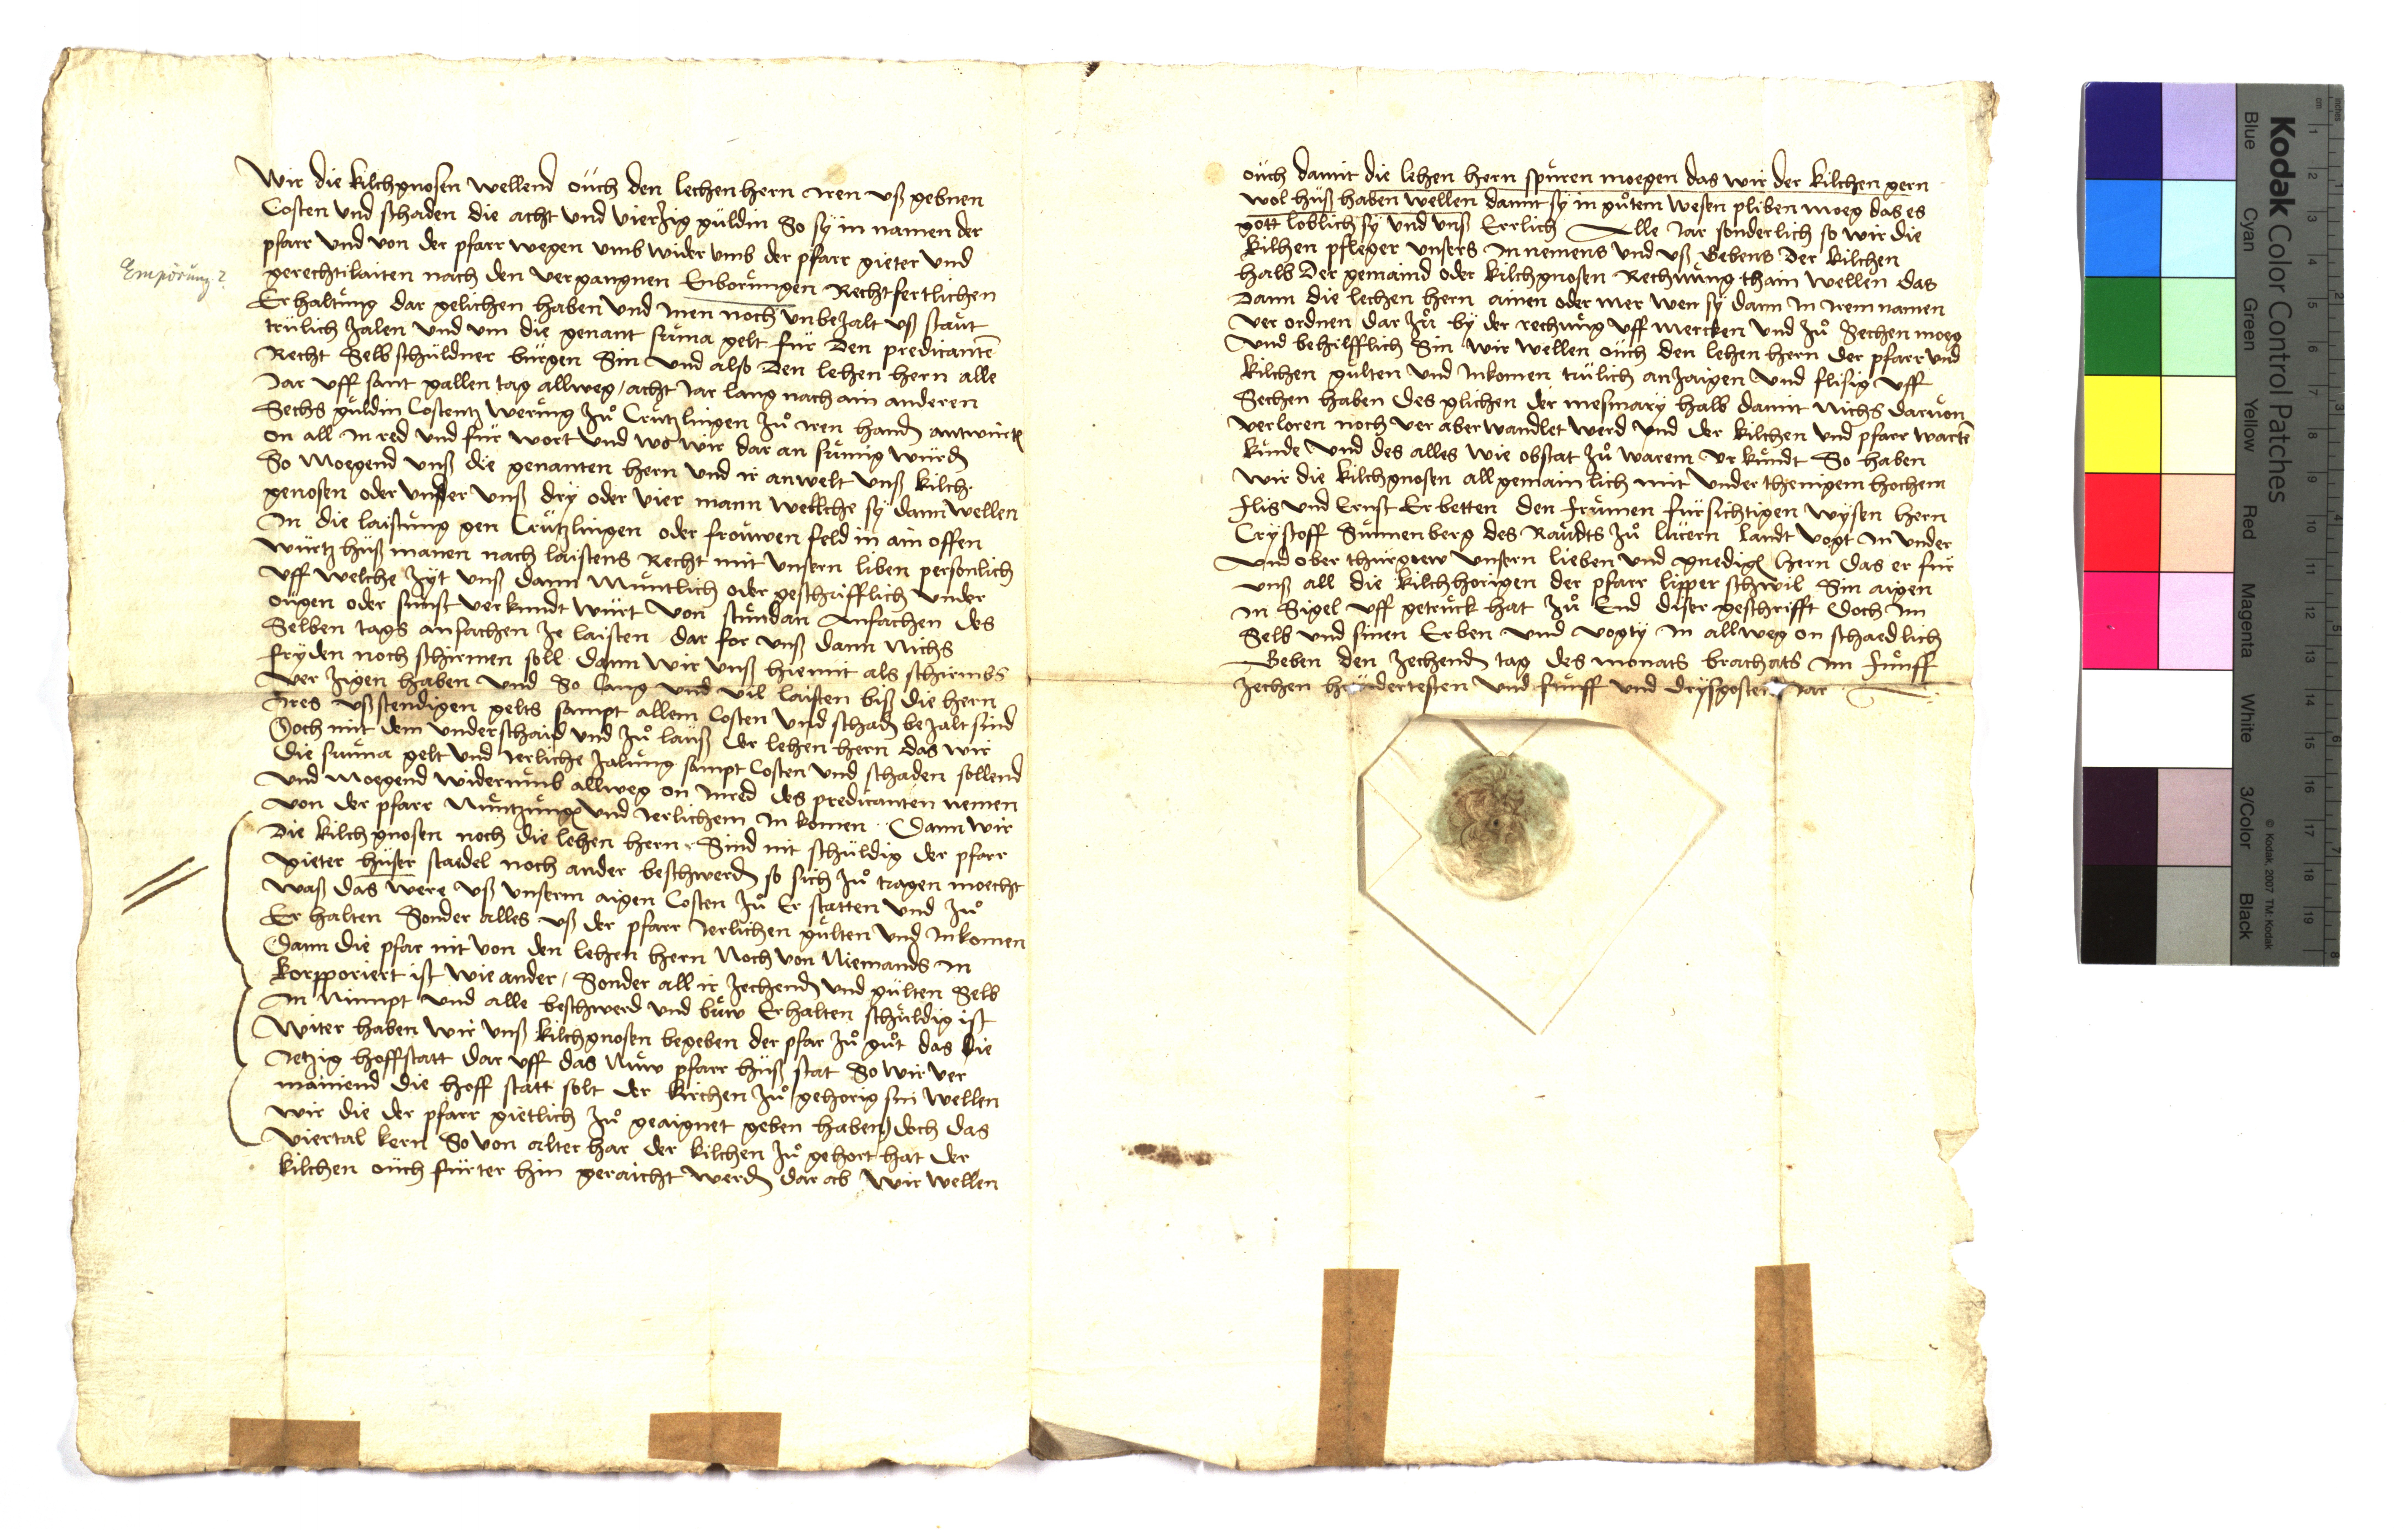 Wir die kilchgnosen wellend ouch den lechenhern iren uß gebnen
Costen und schaden die acht und vierzig guldin So sy in namen der
pfarr und von der pfarr wegen umb wider umb der pfarr gieter und
Emporung?
gerechtikaiten nach den vergangnen Enborungen Rechtfertlichen
Erhaltung dar gelichen haben und inen noch unbezalt uß staut
trulich zalen und um die genant suma gelt fur den predicanten
Recht Selb schuldner burgen Sin und also den lehen hern alle
Jar uff sant gallen tag allweg / acht Jar lang nach ain anderen
Sechs guldin Costentz werung zů Crutzlingen zů iren handen antwurten
on all in red und fur wort und wo wir dar an sumig wurden
So moegend unß die genanten hern und ir anwelt unß kilch
genosen oder under unß dry oder vier mann wellche sy dann wellen
In die laistung gen Crutzlingen oder frouwen feld in ain offen
wurtz huß manen nach laistens Recht mit unsern liben personlich
uff welche zyt unß dann muntlich oder geschrifflich under
ougen oder sunst verkundt wurt von stundan anfachen des
Selben tags anfachen ze laisten dar for unß dann nichs
fryden noch schirmen soll dann wir unß hiemit als schirmbs
ver zigen haben und So lang und vil laisten biß die hern
Ires ußstendigen gelts sampt allem Costen und schaden bezalt sind
Doch mit dem underschaid und zů lauß der lehen hern das wir
die suma gelt und Jerliche zalung sampt Costen und schaden sollend
und moegend widerumb allweg on inred des predicanten nemen
von der pfarr nutzungen und Jerlichem in komen Dann wir
die kilch gnosen noch die lehen hern Sind nit schuldig der pfarr
gieter huser staedel noch ander beschwerden so sich zů tragen moecht
waß das were uß unserm aigen Costen zů Er statten und zů
Er halten Sonder alles uß der pfarr Jerlichen gulten und Inkomen
Dann die pfar nit von den lehen hern Noch von Niemands in
korpporiert ist wie ander / Sonder all ir zechenden und gulten Selb
in Nimpt und alle beschwerd und buw Erhalten schuldig ist
Witer haben wir unß kilchgnosen begeben der pfar zů gůt das die
Jetzig hoffstatt dar uff das Nuw pfarr huß stat So wir ver
mainend die hoff statt solt der kirchen zů gehorig sin wellen
wir die der pfarr gietlich zů geaignet geben haben doch das
viertal kern So von alter har der kilchen zů gehort hat der
kilchen ouch furter hin geraicht werden dar ab wir wellen
ouch damit die lehen hern spuren moegen das wir der kilchen gern
wol huß haben wellen damit sy in gůtem wesen pliben moeg das es
gott loblich sy und unß Errlich Alle Jar sonderlich so wir die
kilchen pfleger unsers in nemens und uß Gebens der kilchen
halb der gemaind oder kilchgnosen Rechnung thain wellen das
dann die lechen hern ainen oder mer wen sy dann in irem namen
ver ordnen dar zů by der rechnung uff mercken und zů Sechen moeg
und behilfflich Sin wir wellen ouch den lehen hern der pfarr und
kilchen gulten und Inkomen trulich anzaigen und flisig uff
Sechen haben des glichen der mesmary halb damit nichs darvon
verloren noch ver aberwandlet werd und der kilchen und pfarr warten
kunde und des alles wie obstat zů warem ur kundt So haben
wir die kilchgnosen all gemainlich mit under thenigem hochem
flis und Ernst Erbetten den frumen fursichtigen wysen hern
Crystoff Sunnenberg des Raudts zů lucern landt vogt in under
und ober thurgeew unsern lieben und gnedigen hern das er fur
unß all die kilchhorigen der pfarr lipper schwil Sin aigen
in Sigel uff getruck hat zů End diser geschrifft doch im
Selb und sinen Erben und vogty in allweg on schaedlich
Geben den zechenden tag des monats brachats im funff
zechen hundertesten und funff und dryssgosten Jar
Kodak Color Control Patches
Blue Cyan Green Yellow Red Magenta White 3/Color Black
© Kodak, 2007 TM: Kodak
cm 1 2 3 4 5 6 7 8 9 10 11 12 13 14 15 16 17 18 19
inches 1 2 3 4 5 6 7 8